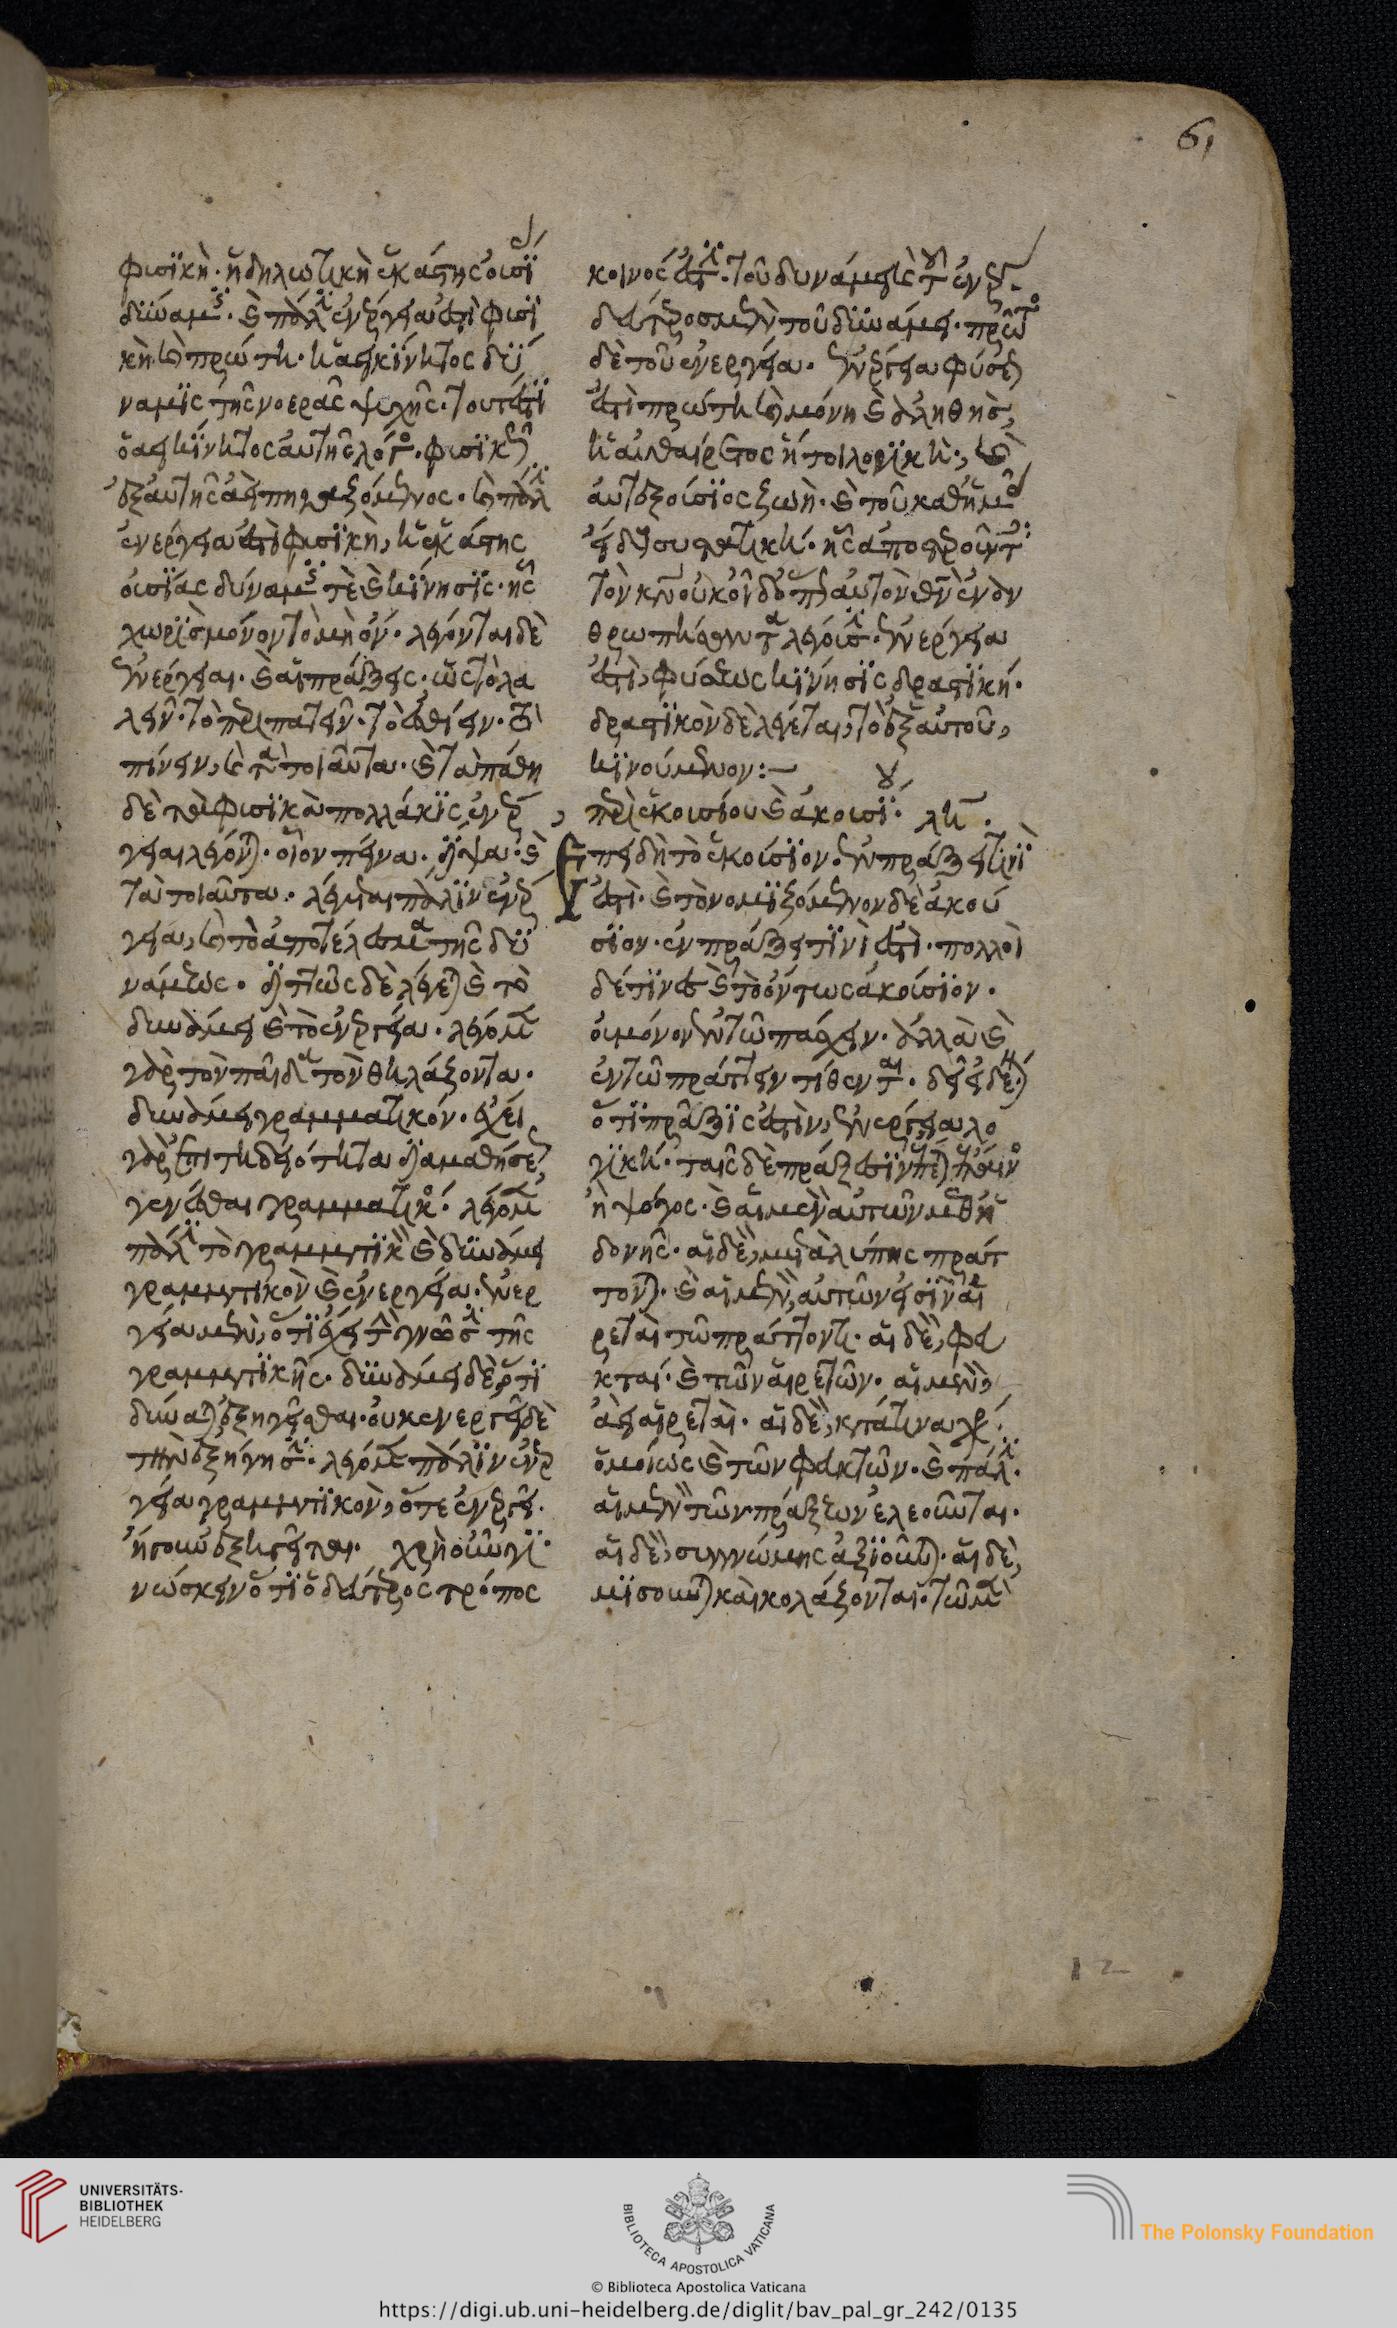 φυσϊκὴ· ἡ δηλωτικὴ ἑκάστης οὐσί
δύναμις· καὶ πάλιν ἐνέργεια ἐστὶ φυσϊ
κὴ καὶ πρώτη· ἡ ἀεικίνητος δύ
ναμϊς τῆς νοερᾶς ψυχῆς· τουτέστϊ
ὁ ἀεικϊνητος αὐτῆς λόγος· φυσϊκῶς
ἐξ αὐτῆς ἀεὶ πηγαζόμενος· καὶ πάλιν
ἐνέργεια ἐστὶ φυσϊκὴ, ἡ ἑκάστης
οὐσίας δύναμις τὲ καὶ κϊνησϊς· ἧς
χωρϊς μόνον τὸ μὴ ὄν· λέγονται δὲ
ἐνέργειαι· καὶ αἱ πράξεις· ὡς τὸ λα
λεῖν· τὸ περιπατεῖν· τὸ ἐσθίειν· καὶ
πίνειν, καὶ τὰ τοιαῦτα· καὶ τὰ πάθη
δὲ τὰ φυσϊκὰ πολλάκϊς ἐνέρ
γειαι λέγονται· οἷον πεῖνα· δίψα· καὶ
τὰ τοιαῦτα· λέγεται πάλϊν ἐνέρ
γεια, καὶ τὸ ἀποτέλεσμα τῆς δυ
νάμεως· διττῶς δὲ λέγεται καὶ τὸ
δυνάμει καὶ τὸ ἐνεργεία· λέγομεν
γὰρ τὸν παῖδα τὸν θηλάζοντα·
δυνάμει γραμματικόν· ἔχει
γὰρ ἐπιτηδειότητα διὰ μαθήσεως
γενέσθαι γραμματικός· λέγομεν
πάλιν τὸ γραμματϊκὸν καὶ δυνάμει
γραμματικὸν καὶ ἐνεργεία· ἐνερ
γεία μὲν, ὅτϊ ἔχει τὴν γνῶσιν τῆς
γραμματϊκῆς· δυνάμει δὲ ὅτϊ
δύναται ἐξηγεῖσθαι· οὐκ ἐνεργεῖ δὲ
τὴν ἐξήγησιν· λέγομεν πάλϊν ἐνερ
γεία γραμματϊκὸν, ὅτε ἐνεργεῖ·
ἤγουν ἐξηγεῖται· χρὴ οὖν γϊ
νώσκειν ὅτϊ ὁ δεύτερος τρόπος
κοινός ἐστι· τοῦ δυνάμει καὶ τοῦ ἐνερ
δεύτερος μὲν τοῦ δυνάμει· πρῶτος
δὲ τοῦ ἐνεργεία· ἐνέργεια φύσεως
ἐστὶ πρώτη καὶ μόνη καὶ ἀληθὴς,
ἡ αὐθαίρετος ἤτοι λογϊκὴ, καὶ
αὐτεξούσϊος ζωὴ· καὶ τοῦ καθ' ἡμᾶς
εἴδους συστατικὴ· ἧς ἀποστεροῦντες
τὸν κύριον οὐκ οἶδ' ὅπως αὐτὸν θεὸν ἐναν
θρωπήσαντα λέγουσιν· ἐνέργεια
ἐστὶ, φύσεως κϊνησϊς δραστϊκή·
δραστϊκὸν δὲ λέγεται, τὸ ἐξ ἑαυτοῦ,
κϊνούμενον:—
περὶ ἑκουσίου καὶ ἀκουσίου· λη
Επειδὴ τὸ ἑκούσϊον ἐν πράξει τινὶ
ἐστὶ· καὶ τὸ νομϊζόμενον δὲ ἀκού
σϊον· ἐν πράξει τϊνὶ ἐστὶ· πολλοὶ
δέ τϊνες καὶ τὸ ὄντως ἀκούσϊον·
οὐ μόνον ἐν τῶ πάσχειν· ἀλλὰ καὶ
ἐν τῶ πράττειν τίθενται· δεῖ εἰδέναι
ὅτϊ πρᾶξϊς ἐστὶν, ἐνέργεια λο
γϊκή· ταῖς δὲ πράξεσϊν ἕπεται ἔπαινος
ἢ ψόγος· καὶ αἱ μὲν αὐτῶν μεθ' ἡ
δονῆς· αἱ δὲ, μετὰ λύπης πράτ
τονται· καὶ αἱ μὲν, αὐτῶν εἰσϊν αἱ
ρεταὶ τῶ πράττοντι· αἱ δὲ, φευ
κταί· καὶ τῶν αἱρετῶν· αἱ μὲν,
ἀεὶ αἱρεταὶ· αἱ δὲ, κατά τινα χρό
ὁμοίως καὶ τῶν φευκτῶν· καὶ πάλιν·
αἱ μὲν τῶν πράξεων ἐλεοῦνται·
αἱ δὲ, συγγνώμης ἀξϊοῦνται· αἱ δὲ,
μϊσοῦνται καὶ κολάζονται· τῶ μὲν
61
12
UNIVERSITÄTS-
BIBLIOTHEK
HEIDELBERG
BIBLIOTECA APOSTOLICA VATICANA
The Polonsky Foundation
© Biblioteca Apostolica Vaticana
https://digi.ub.uni-heidelberg.de/diglit/bav_pal_gr_242/0135